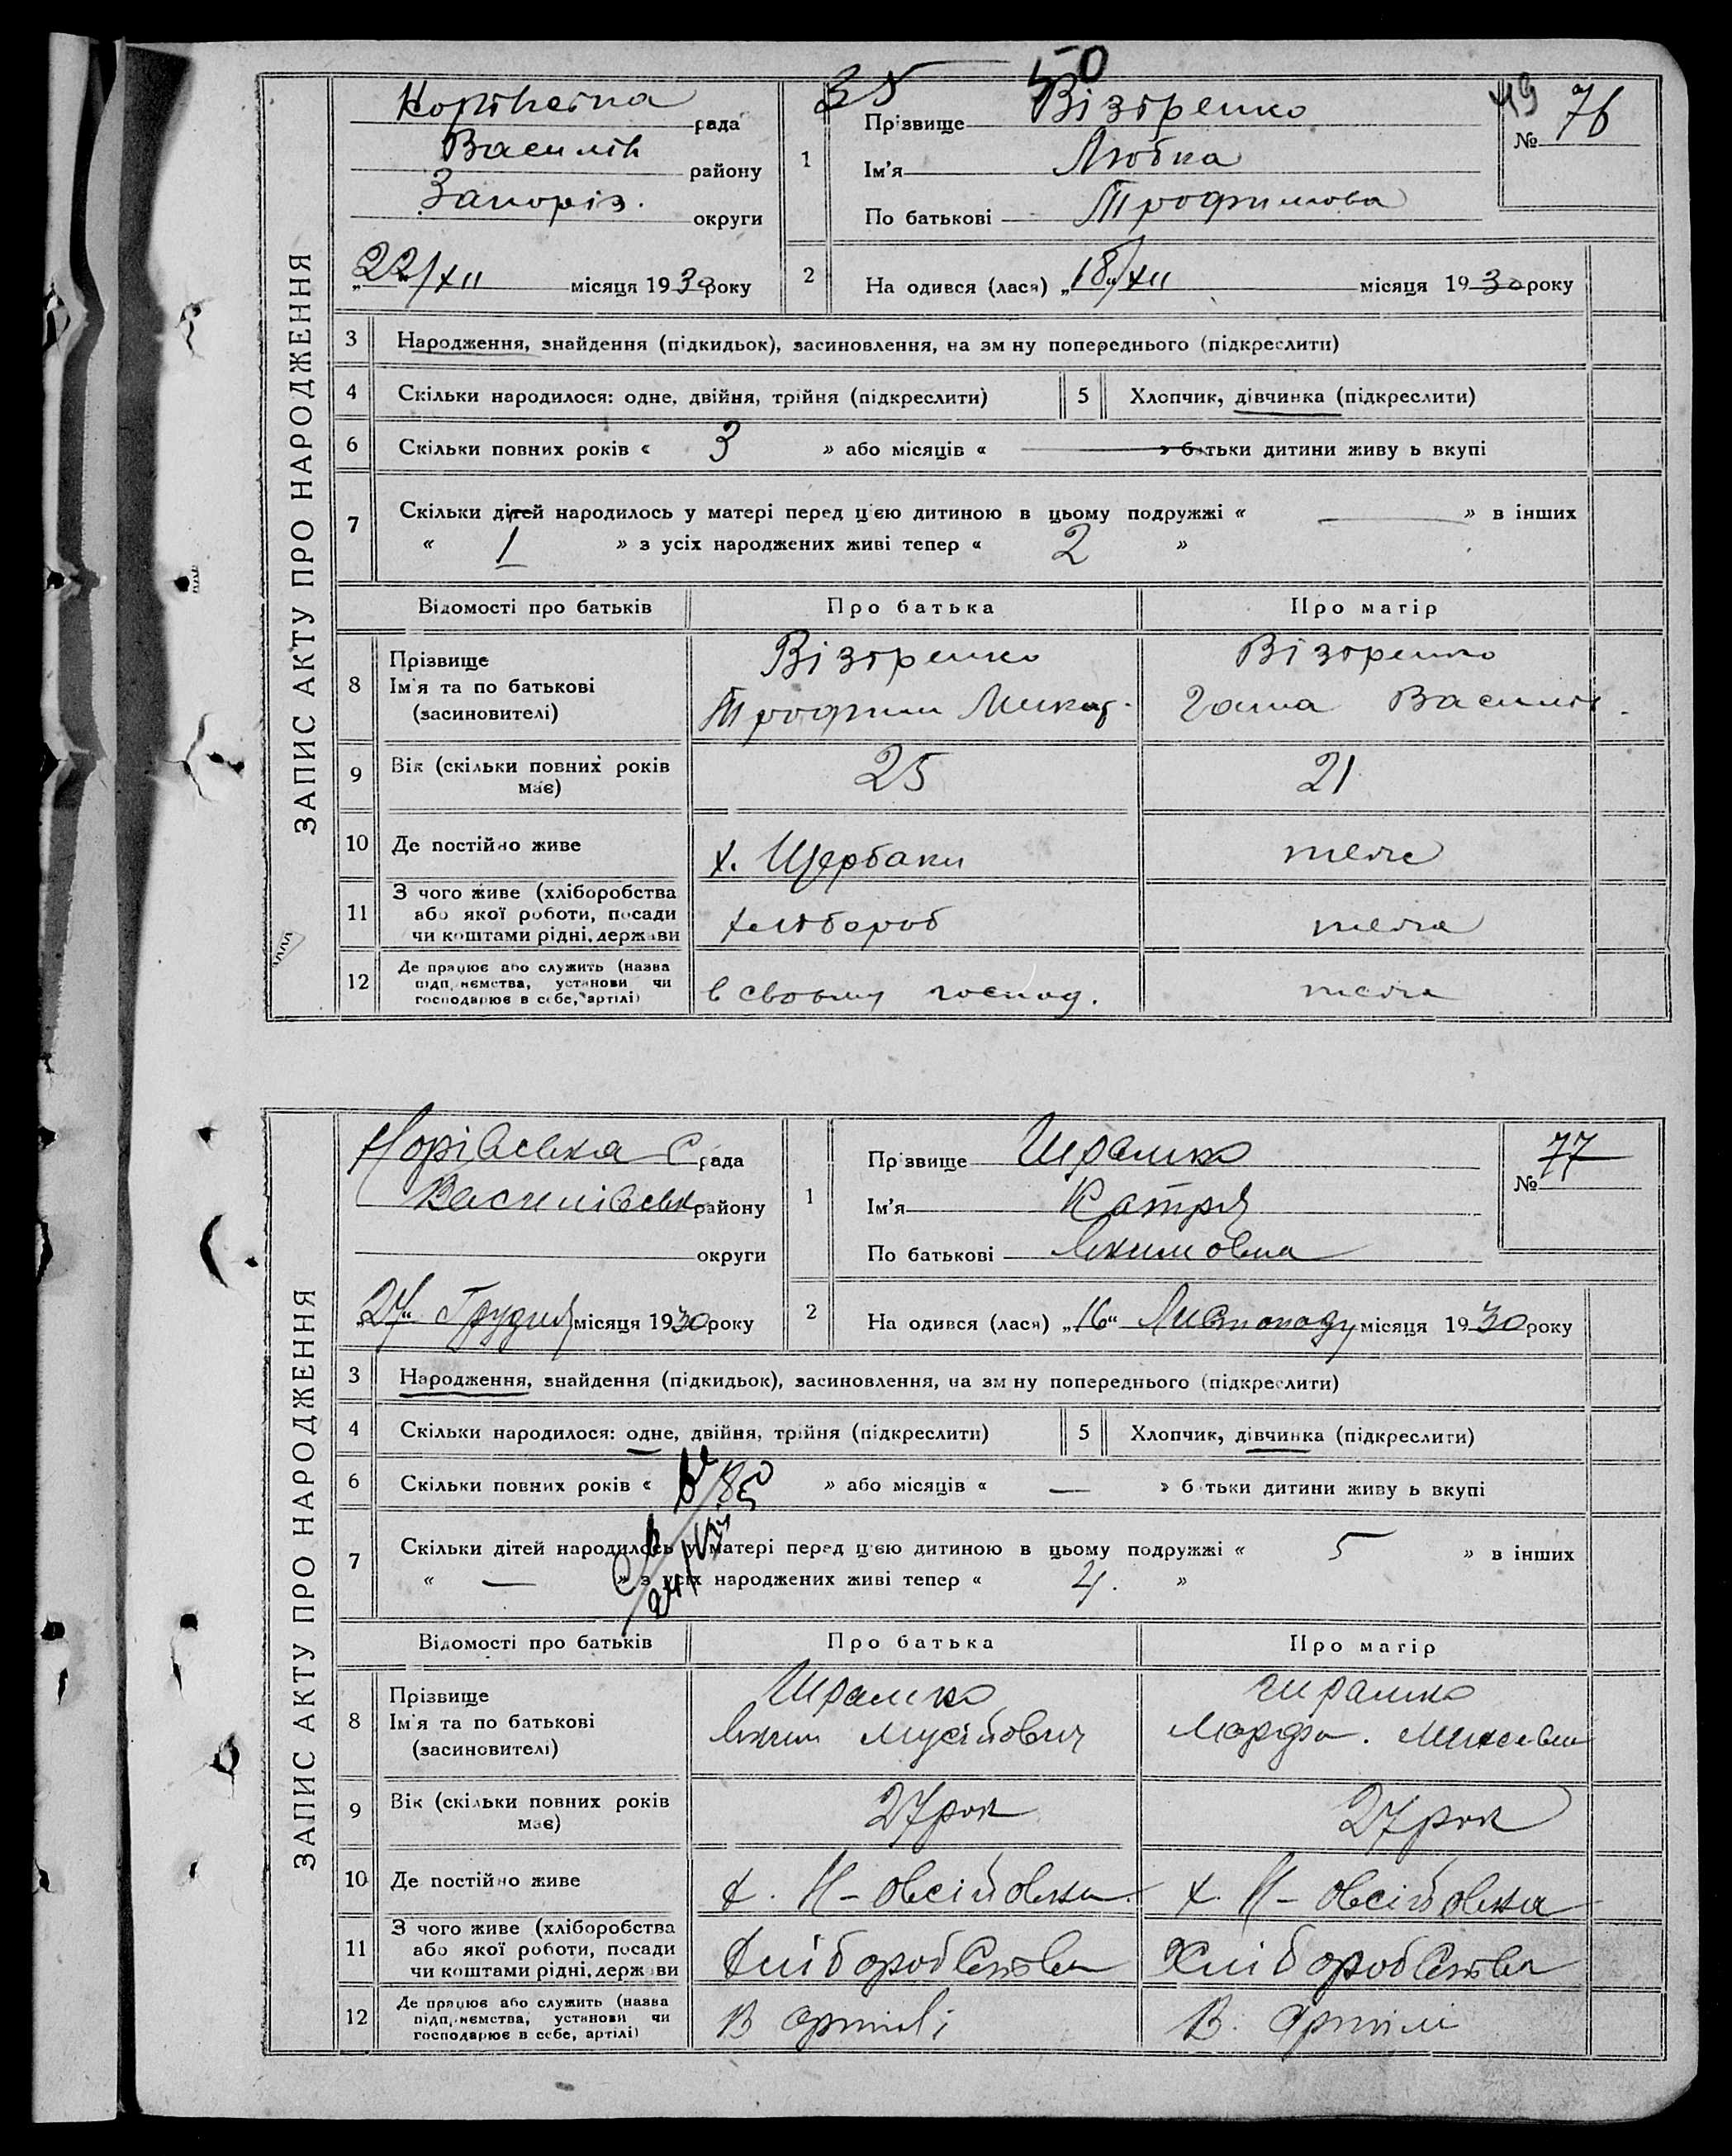 35
50
49
ЗАПИС АКТУ ПРО НАРОДЖЕННЯ
рада
Василів району
Запоріз. округи
"22"/XII місяця 1930 року
1
Прізвище Візіренко
Ім'я Любка
По батькові Трофимова
№ 76
2 На одився (лася) "18"/XII місяця 1930 року
3 Народження, знайдення (підкидьок), засиновлення, на зм ну попереднього (підкреслити)
4 Скільки народилося: одне, двійня, трійня (підкреслити) 5 Хлопчик, дівчинка (підкреслити)
6 Скільки повних років « 3 » або місяців « — » б тьки дитини живу ь вкупі
7 Скільки дітей народилось у матері перед цією дитиною в цьому подружжі « — » в інших
« 1 » з усіх народжених живі тепер « 2 »
Відомості про батьків Про батька Про матір
8 Прізвище
Ім'я та по батькові
(засиновителі)
Візіренко
Трофим Микит.
Візіренко
Ганна Василів.
9 Вік (скільки повних років має) 25 21
10 Де постійно живе х. Щербаки теж
11 З чого живе (хліборобства
або якої роботи, посади
чи коштами рідні, держави
хлібороб теж
12 Де працює або служить (назва
підп, иємства, установи чи
господарює в себе, артілі)
в своєму господ. теж
ЗАПИС АКТУ ПРО НАРОДЖЕННЯ
с рада
Василівськ району
округи
"27" Грудня місяця 1930 року
1
Пр звище Шрамко
Ім'я Катря
По батькові Якимовна
№ 77
2 На одився (лася) "16" Листопаду місяця 1930 року
3 Народження, знайдення (підкидьок), засиновлення, на зм ну попереднього (підкреслити)
4 Скільки народилося: одне, двійня, трійня (підкреслити) 5 Хлопчик, дівчинка (підкреслити)
6 Скільки повних років « » або місяців « — » б тьки дитини живу ь вкупі
7 Скільки дітей народилось у матері перед цією дитиною в цьому подружжі « 5 » в інших
« — » з усіх народжених живі тепер « 4. »
Відомості про батьків Про батька Про матір
8 Прізвище
Ім'я та по батькові
(засиновителі)
Шрамко
Яким Мусійович
Шрамко
Марфа.
9 Вік (скільки повних років має) 27 рок 27 рок
10 Де постійно живе х. Н-Овсійовка х. Н-Овсійовка
11 З чого живе (хліборобства
або якої роботи, посади
чи коштами рідні, держ ви
Хліборобства Хліборобства
12 Де працює або служить (назва
підп, иємства, установи чи
господарює в себе, артілі)
В артілі В. артілі